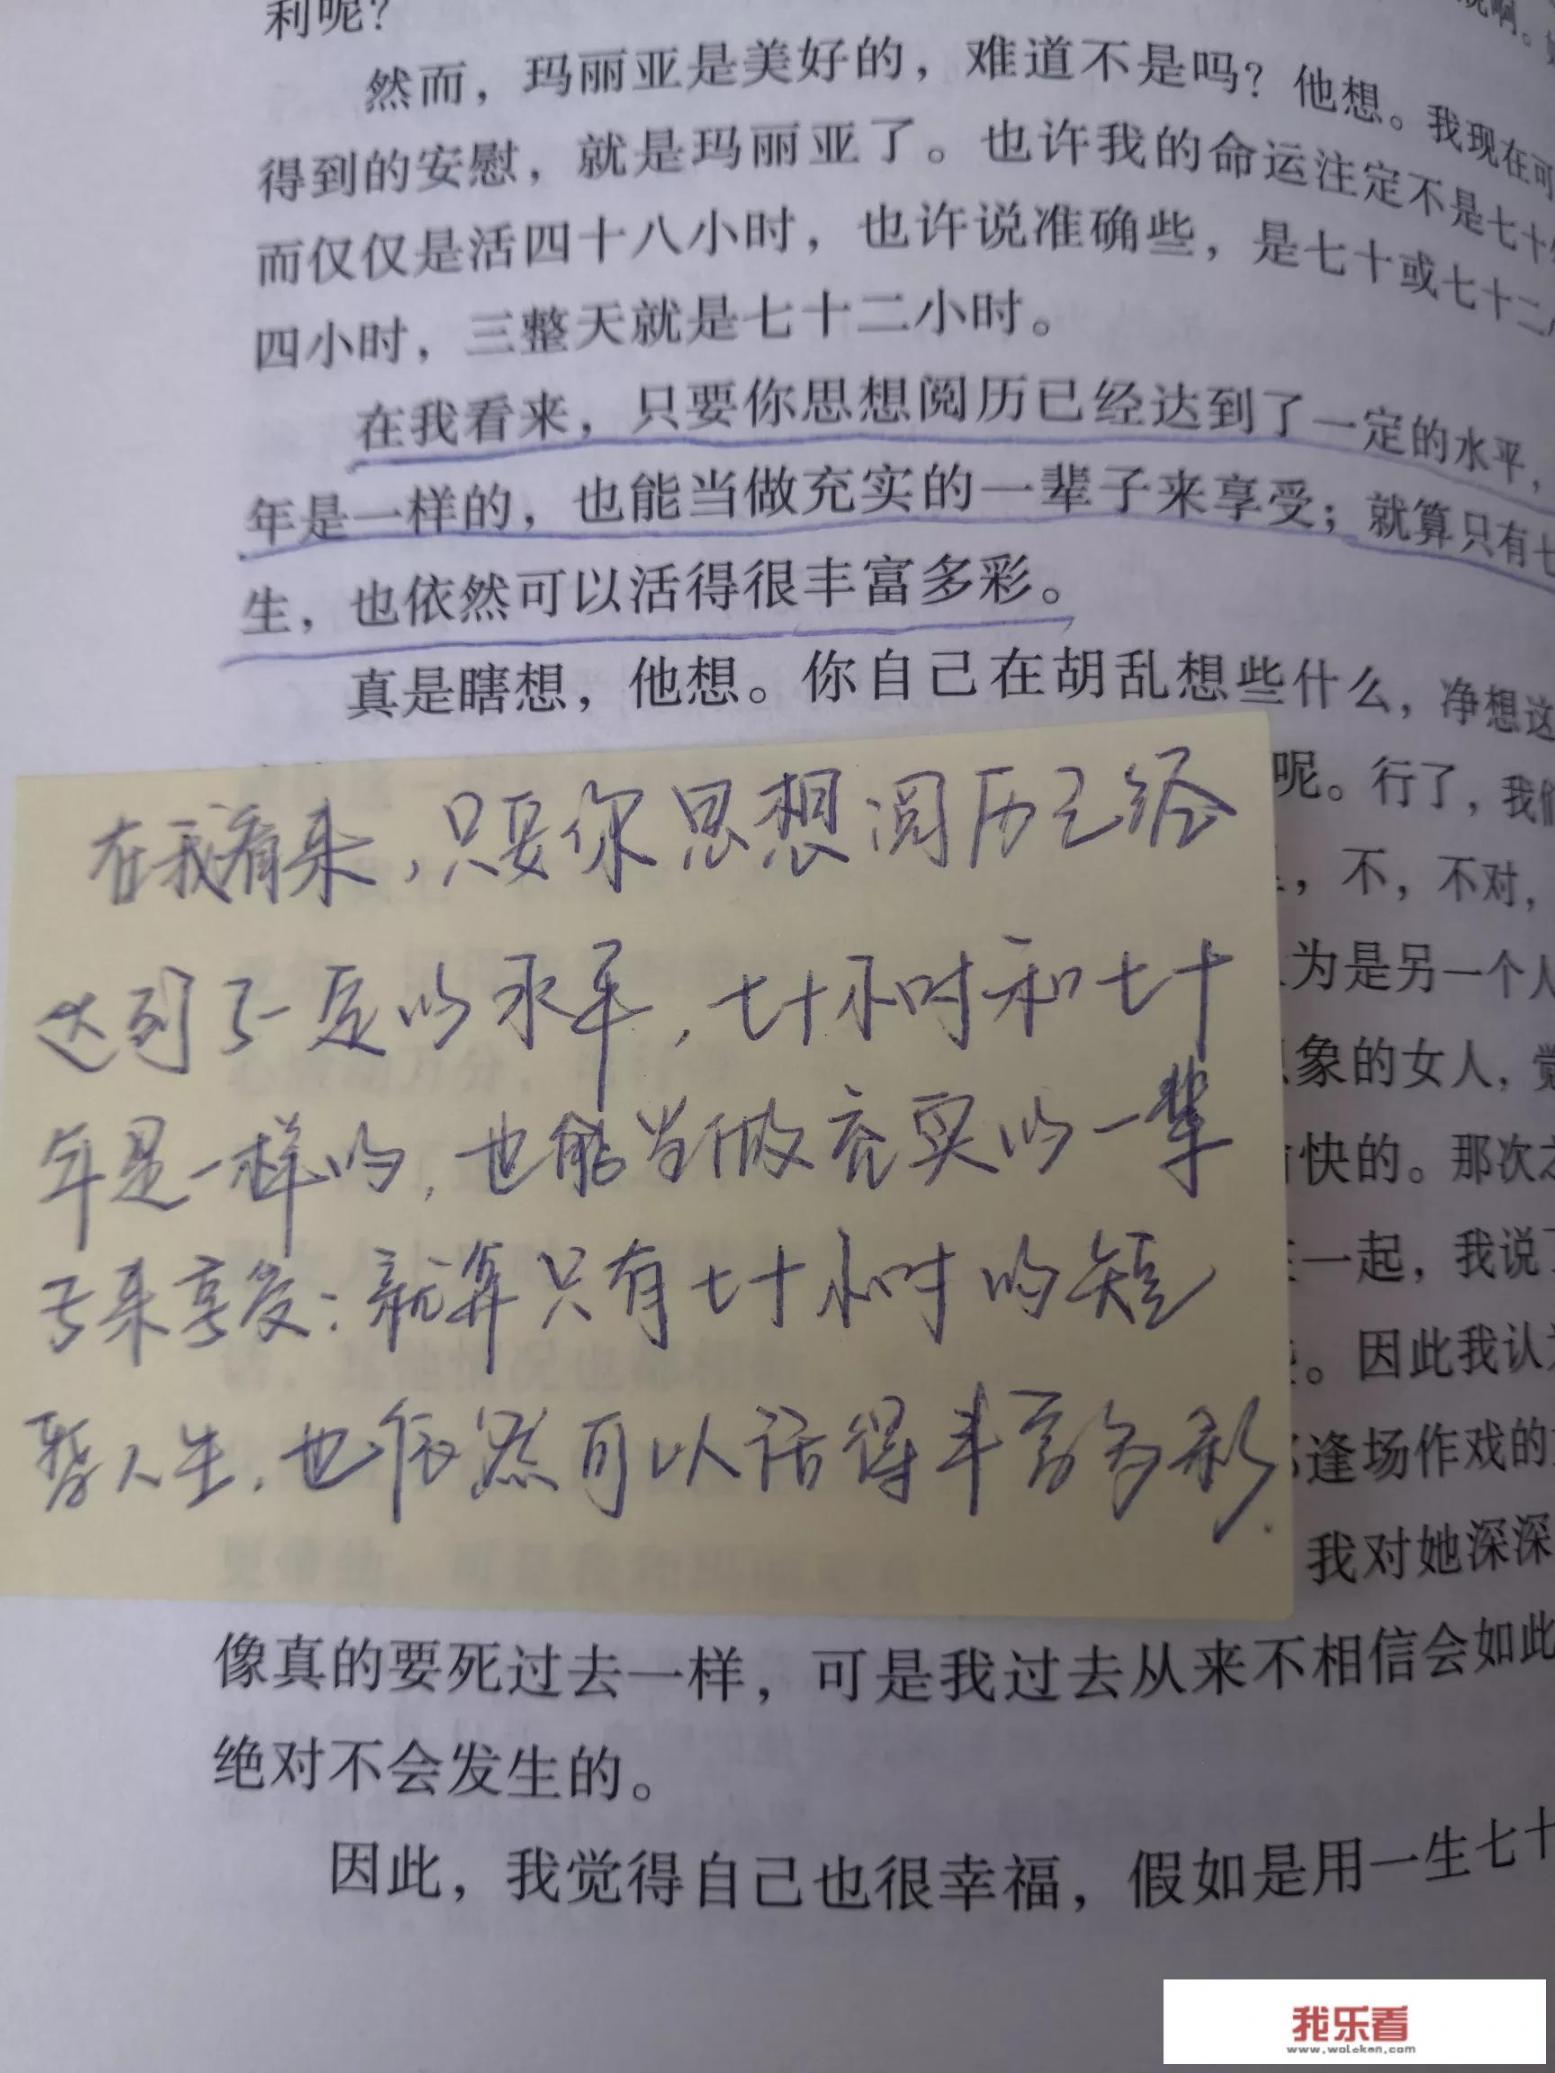 利呢？
然而，玛丽亚是美好的，难道不是吗？他想。我现在可
得到的安慰，就是玛丽亚了。也许我的命运注定不是七十
而仅仅是活四十八小时，也许说准确些，是七十或七十二
四小时，三整天就是七十二小时。
在我看来，只要你思想阅历已经达到了一定的水平，
年是一样的，也能当做充实的一辈子来享受；就算只有七
生，也依然可以活得很丰富多彩。
真是瞎想，他想。你自己在胡乱想些什么，净想这
呢。行了，我们
，不，不对，
为是另一个人
象的女人，觉
快的。那次
一起，我说了
。因此我认为
逢场作戏的
我对她深深
在我看来，只要你思想阅历已经
达到了一定的水平，七十小时和七十
年是一样的，也能当做充实的一辈
子来享受；就算只有七十小时的短
暂人生，也依然可以活得丰富多彩.
像真的要死过去一样，可是我过去从来不相信会如此
绝对不会发生的。
因此，我觉得自己也很幸福，假如是用一生七十
我乐看
www.woleken.com